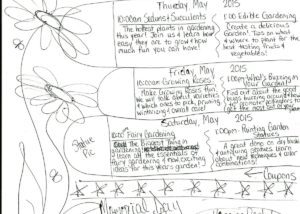 Thursday May 2015
10:00am Sedums & Succulents
The hottest plants in gardening
this year! Join us & learn how
easy they are to grow & how
much fun you can have!
1:00 Edible Gardening
Create a delicious
Garden! Tips on what
& where to plant for the
best tasting fruits &
vegetables!
Friday, May 2015
10:00am Growing Roses
Make Growing Roses fun!
We will talk about varieties
which ones to pick, pruning,
winterizing & overall care!
1:00pm What's Buzzing in
Your Garden!
Find out about the good
bugs buzzing around &
to
the
Saturday, May 2015
10:00 Fairy Gardening
The Biggest thing in
gardening
learn all the essentials of
fairy gardening & new exciting
ideas for this years garden!
1:00pm Painting Garden
Statues
A great class on dry brush
& antiquing statues. Learn
about new techniques & color
combinations
Statue
Pic
Coupons
Memorial Day